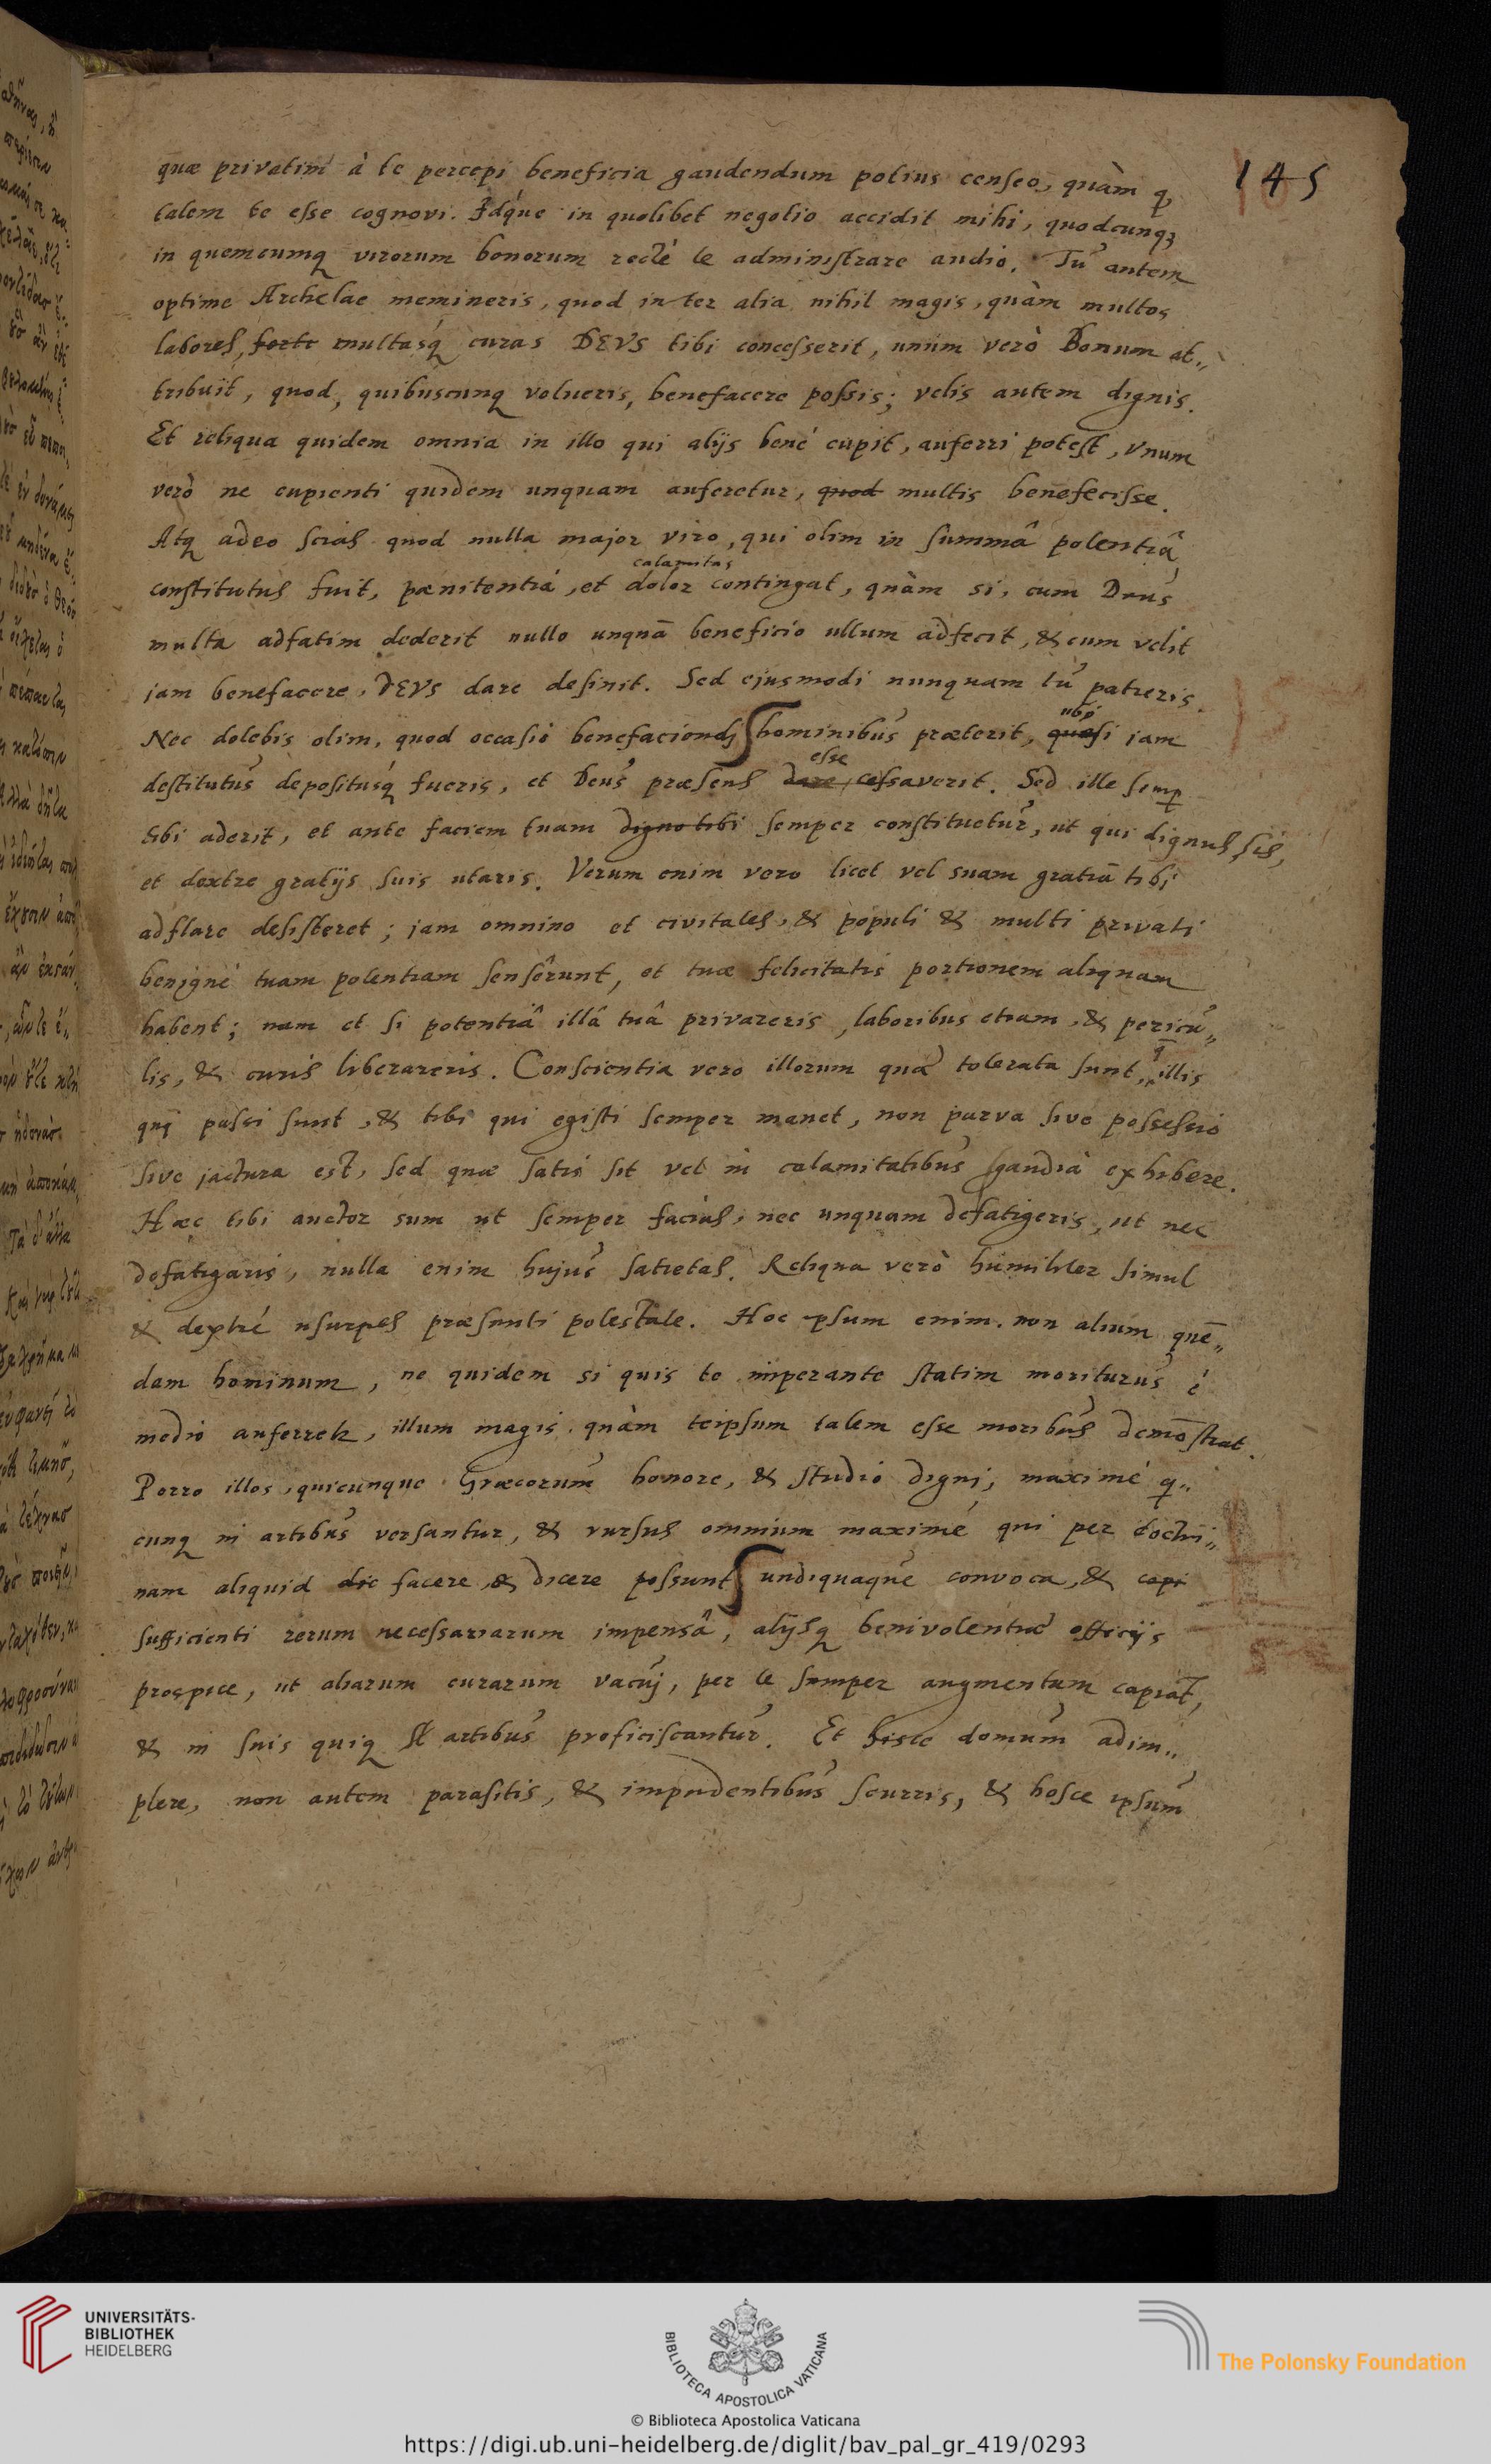 145
quæ privatim à te percepi beneficia gaudendum potius censeo, quàm q
talem te esse cognovi. Idque in quolibet negotio accidit mihi, quodcunq
in quemcumq virorum bonorum rectè te administrare audio. Tu autem
optime Archelae memineris, quod inter alia nihil magis, quàm multos
labores, forte multasq curas DEVS tibi concesserit, unum verò Bonum at„
tribuit, quod, quibuscunq volueris, benefacere possis; velis autem dignis.
Et reliqua quidem omnia in illo qui alijs benè cupit, auferri potest, vnum
verò ne cupienti quidem unquam auferetur, quod multis benefecisse.
Atq adeo scias quod nulla major viro, qui olim in summâ potentiâ
calamitas
constitutus fuit, pænitentia, et dolor contingat, quàm si, cum Deus
multa adfatim dederit nullo unquā beneficio ullum adfecit, & cum velit
jam benefacere, DEVS dare desinit. Sed ejusmodi nunquam tu patieris.
ubi
Nec dolebis olim, quod occasio benefaciendj hominibus præterit, quasi jam
esse
destitutus depositusq fueris, et Deus præsens dare cessaverit. Sed ille semp
tibi aderit, et ante faciem tuam digno tibi semper constituetur, ut qui dignus sis,
et dextre gratijs suis utaris. Verum enim vero licet vel suam gratiā tibj
adflare desisteret; jam omnino et civitates, & populi & multi privati
benignè tuam potentiam sensêrunt, et tuæ felicitatis portionem aliquam
habent; nam et si potentiâ illâ tuâ privareris, laboribus etiam, & pericu„
lis, & curis liberareris. Conscientia vero illorum quæ tolerata sunt, illis
qui passi sunt, & tibi qui egisti semper manet, non parva sive possessio
sive jactura est, sed quæ satis sit vel in calamitatibus gaudia exhibere.
Hæc tibi auctor sum ut semper facias, nec unquam defatigeris, ut nec
defatigaris, nulla enim hujus satietas. Reliqua verò humiliter simul
& dextrè usurpes præsenti potestate. Hoc ipsum enim non alium quē„
dam hominum, ne quidem si quis te imperante statim moriturus è
medio auferret, illum magis quàm teipsum talem esse moribus demōstrat.
Porro illos, quicunque Græcorum honore, & studio dignj, maximè q„
cunq in artibus versantur, & rursus omnium maximè qui per doctri„
nam aliquid dic facere & dicere possunt undiquaque convoca, & copi
sufficienti rerum necessariarum impensâ, alijsq benivolentiæ officijs
prospice, ut aliarum curarum vacuj, per te semper augmentum capiāt,
& in suis quiq artibus proficiscantur. Et hisce domum adim„
plere, non autem parasitis, & impudentibus scurris, & hosce ipsum
UNIVERSITÄTS-
BIBLIOTHEK
HEIDELBERG
BIBLIOTECA APOSTOLICA VATICANA
The Polonsky Foundation
© Biblioteca Apostolica Vaticana
https://digi.ub.uni-heidelberg.de/diglit/bav_pal_gr_419/0293